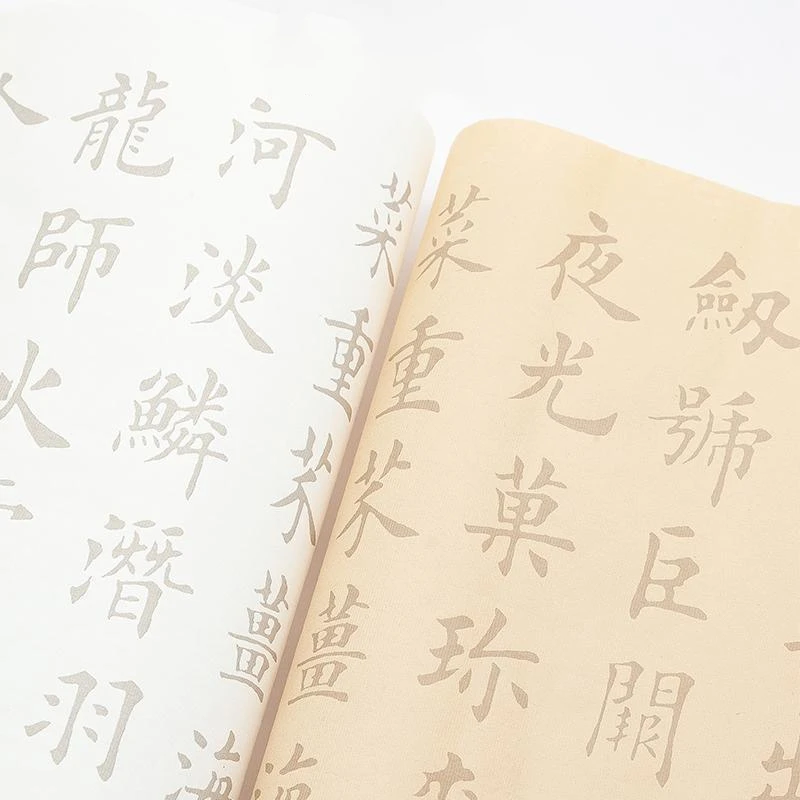 劒號巨闕
夜光菓珎
菜重芥薑海
菜重芥薑海
河淡鱗潛羽
龍師火